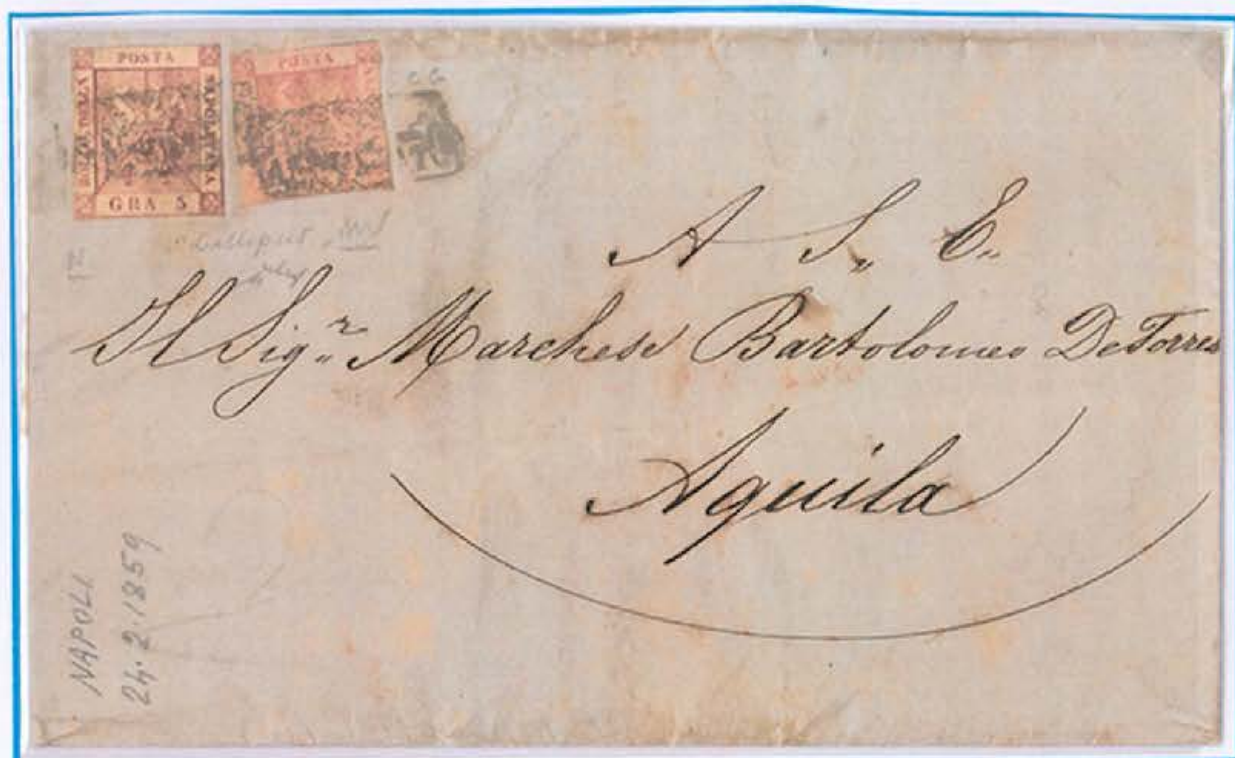 POSTA
BOLLO DELLA
NAPOLETANA
GRA 5
POSTA
A S. E.
Il Sig.r Marchese Bartolomeo De Torres
Aquila
NAPOLI
24.2.1859